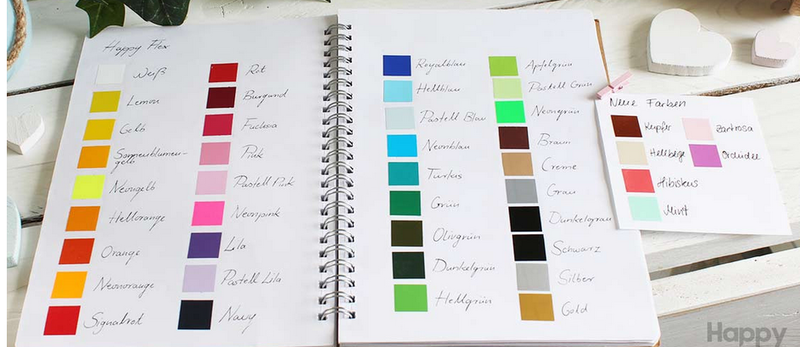 Happy Flex
Weiß
Lemon
Gelb
Sonnenblumen-
gelb
Neongelb
Hellorange
Orange
Neonorange
Signalrot
Rot
Burgund
Fuchsia
Pink
Pastell Pink
Neonpink
Lila
Pastell Lila
Navy
Royalblau
Hellblau
Pastell Blau
Neonblau
Türkis
Grün
Olivgrün
Dunkelgrün
Hellgrün
Apfelgrün
Pastell Grün
Neongrün
Braun
Creme
Grau
Dunkelgrau
Schwarz
Silber
Gold
Neue Farben
Kupfer
Hellbeige
Hibiskus
Mint
Zartrosa
Orchidee
Happy